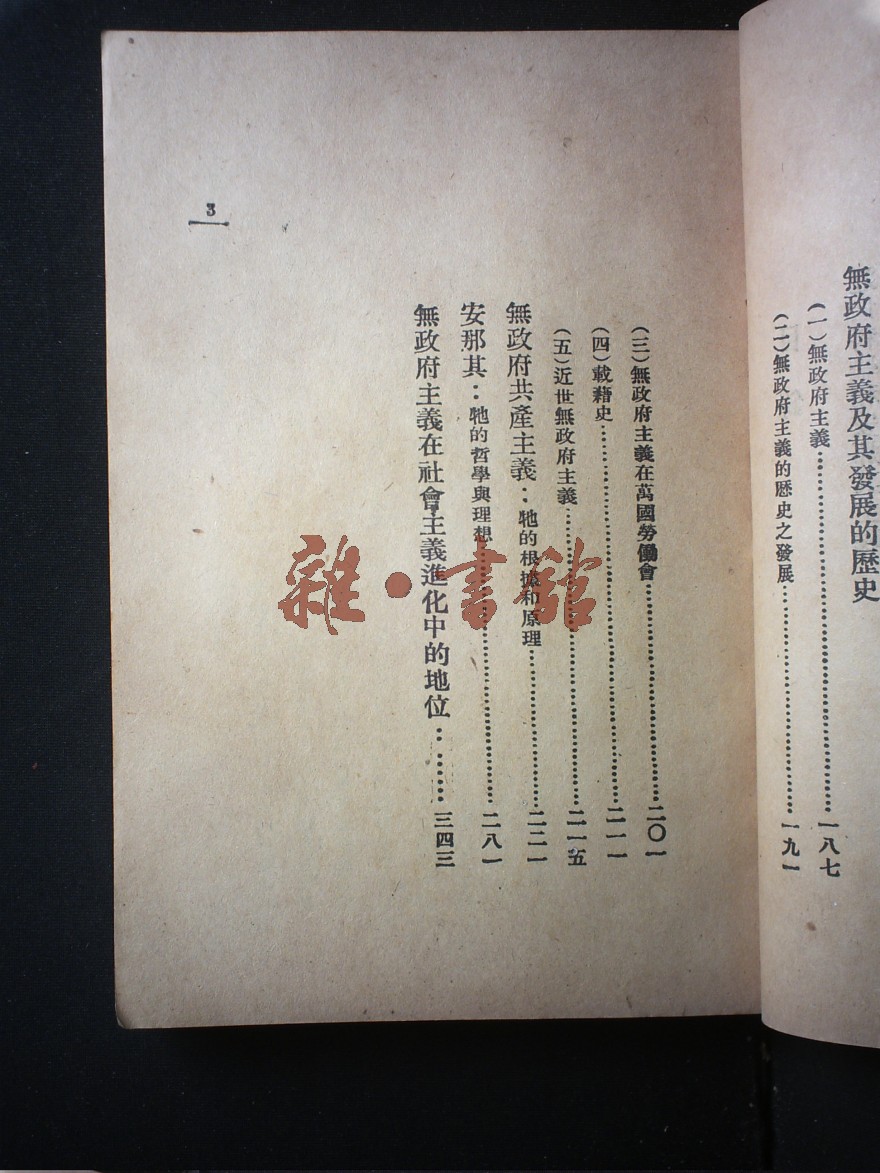 無政府主義及其發展的歷史
(一)無政府主義……一八七
(二)無政府主義的歷史之發展……一九一
(三)無政府主義在萬國勞働會……二〇一
(四)載籍史……二一一
(五)近世無政府主義……二一五
無政府共產主義：牠的根據和原理……二二一
安那其：牠的哲學與理想……二八一
無政府主義在社會主義進化中的地位……三四三
3
雜·書館